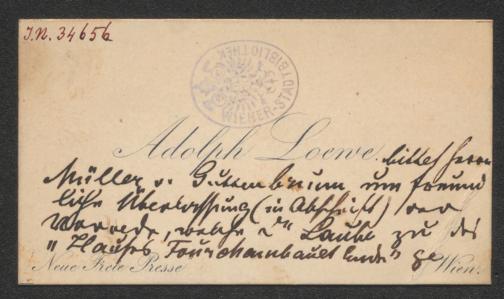 J.N. 34656
WIENER-STADTBIBLIOTHEK
Adolph Loewe. bittet Herrn
Müller v. Guttenbrunn, um freund
liche Überlassung (in Abschrift) der
Vorrede, welche Laube zu des
"Hauses Fourchambault Ende" ge
Neue Freie Presse
Wien.